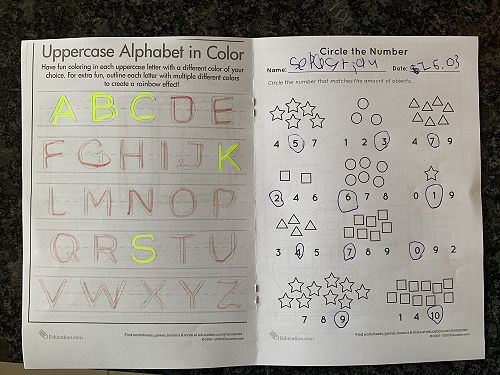 Uppercase Alphabet in Color
Have fun coloring in each uppercase letter with a different color of your
choice. For extra fun, outline each letter with multiple different colors
to create a rainbow effect!
A B C D E
F G H I J K
L M N O P
Q R S T U
V W X Y Z
Education.com
Find worksheets, games, lessons & more at education.com/resources
© 2007 - 2020 Education.com
Circle the Number
Name: Date: 25.03
Circle the number that matches the amount of objects.
4 5 7 1 2 3 4 7 9
2 4 6 6 7 8 0 1 9
3 4 5 7 8 9 0 9 2
7 8 9 1 4 10
Education.com
Find worksheets, games, lessons & more at education.com/resources
© 2007 - 2020 Education.com